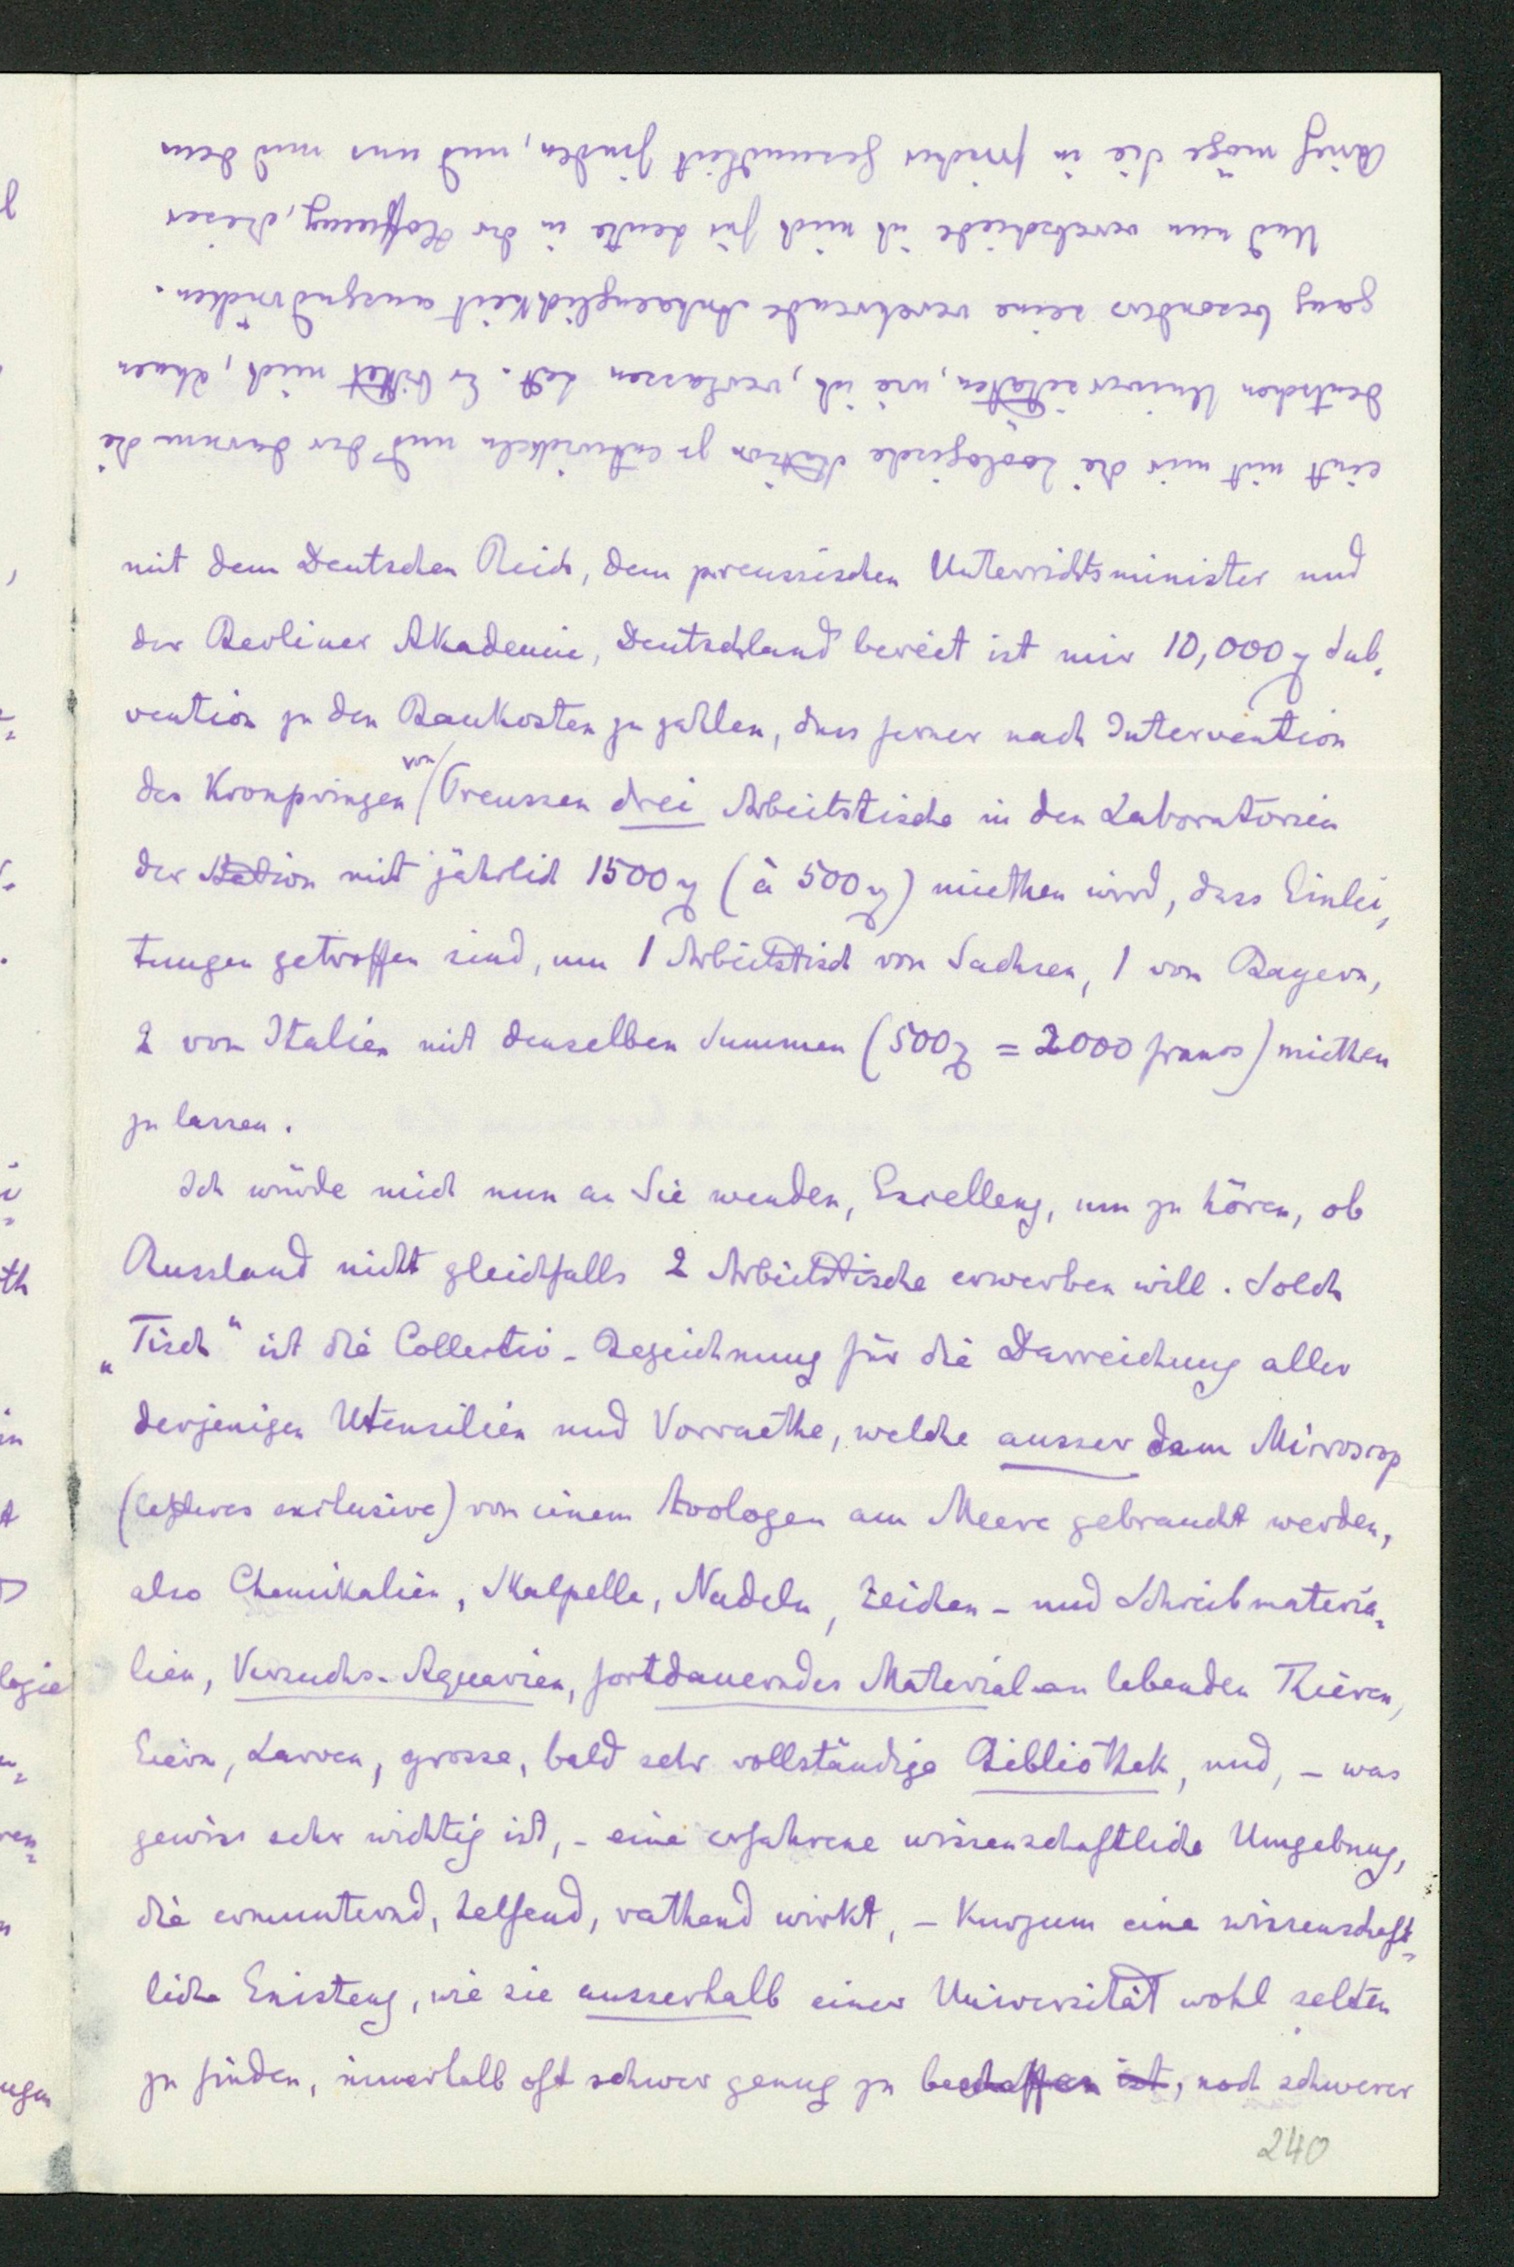 mit dem Deutschen Reich, dem preussischen Unterrichtsminister und
der Berliner Akademie, Deutschland bereit ist mir 10,000 Sub-
vention zu den Baukosten zu zahlen, dass ferner nach Intervention
des Kronprinzen von Preussen drei Arbeitstische in den Laboratorien
der Station mit jährlich 1500 (à 500) miethen wird, dass Einlei-
tungen getroffen sind, um 1 Arbeitstisch von Sachsen, 1 von Bayern,
2 von Italien mit denselben Summen (500 = 2000 francs) miethen
zu lassen.
Ich würde mich nun an Sie wenden, Excellenz, um zu hören, ob
Russland nicht gleichfalls 2 Arbeitstische erwerben will. Solch
„Tisch“ ist die Collectiv-Bezeichnung für die Darreichung aller
derjenigen Utensilien und Vorraethe, welche ausser dem Microscop
(letzteres exclusive) von einem Zoologen am Meere gebraucht werden,
also Chemikalien, Skalpelle, Nadeln, Zeichen- und Schreibmateria-
lien, Versuchs-Aquarien, fortdauerndes Material an lebenden Thieren,
Eiern, Larven, grosse, bald sehr vollständige Bibliothek, und, – was
gewiss sehr wichtig ist, – eine erfahrene wissenschaftliche Umgebung,
die ermunternd, helfend, rathend wirkt, – kurzum eine wissenschaft-
liche Existenz, wie sie ausserhalb einer Universität wohl selten
zu finden, innerhalb oft schwer genug zu beschaffen ist, noch schwerer
240
einst mit mir die Zoologische Station zu entwickeln und der darum die
deutschen Universitäten, wie ich, verlassen hat. Er bittet mich, Ihnen
ganz besonders seine verehrende Anhaenglichkeit auszudrücken.
Und nun verabschiede ich mich für heute in der Hoffnung, dieser
Brief möge Sie in frischer Gesundheit finden, und uns und dem